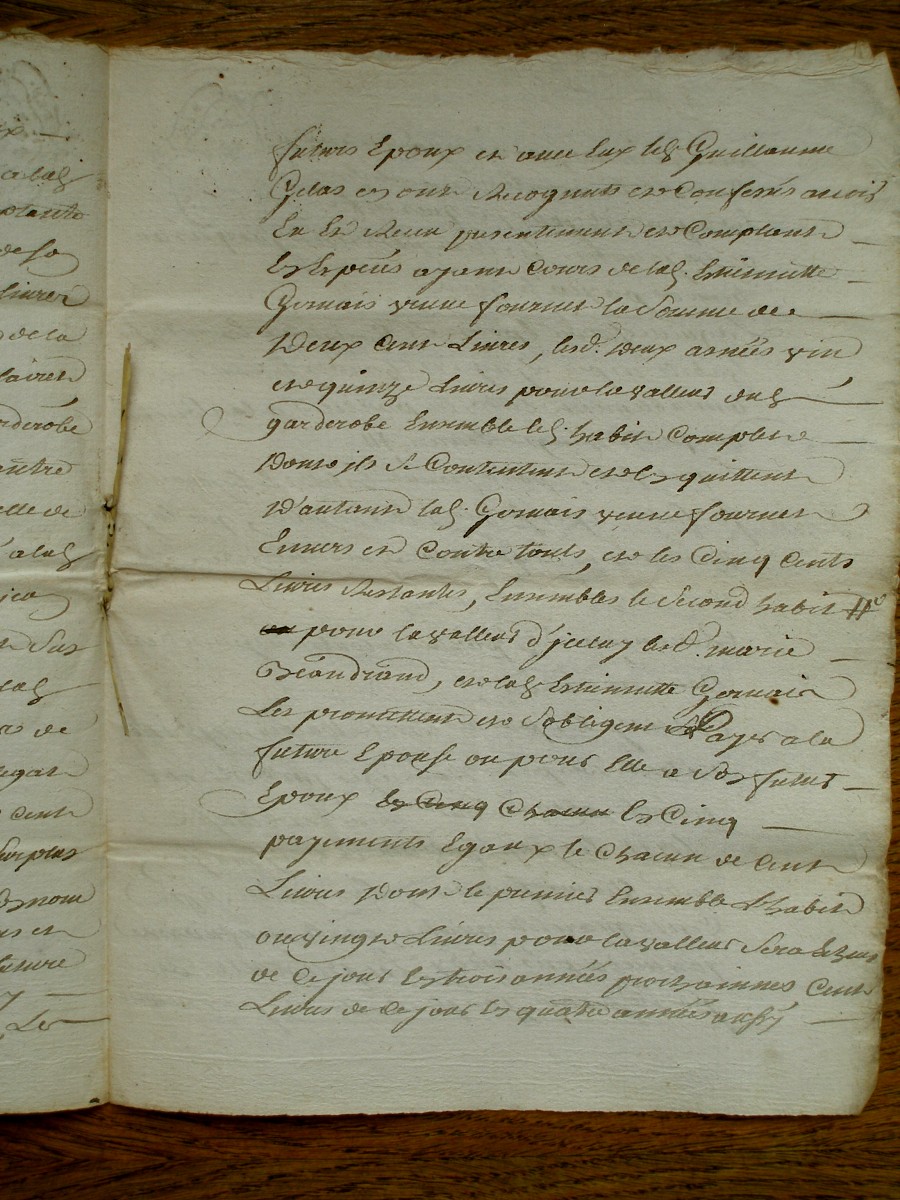 futurs Epoux et avec Eux led. Guillaume
Gelas et ont Recognuts et confessés avoir
Eu Et Reçeu presentement et Comptant
En Especes ayant cours de lad. Estiennette
Gervais veuve fournier la Somme de
Deux Cent Livres, lesd. Deux années vin
et quinze Livres pour la valleur dud
garderobe Ensemble led. habit complet
Dont ils se Contentent et En quittent
D'autant lad. Gervais veuve fournier
Envers et contre touts, et les Cinq Cents
Livres Restantes, Ensembles le second habit
pour la valleur d'jceluy lesd. marie
et lad Estiennette Gervais
Les promettent et s'obligent Payer a la
future Epouse ou pour Elle a Son futur
Epoux En Cinq Chacun En Cinq
payements Egaux le Chacun de Cent
Livres Dont le premier Ensemble L'habit
ou vingt Livres pour la valleur Sera
de Ce jour En trois années prochaines Cent
Livres de Ce jour En quatre années aussy
x
alad
de sa
Livres
de la
garderobe
elle de
alad
Sur
lad
de
Cent
Surplus
future